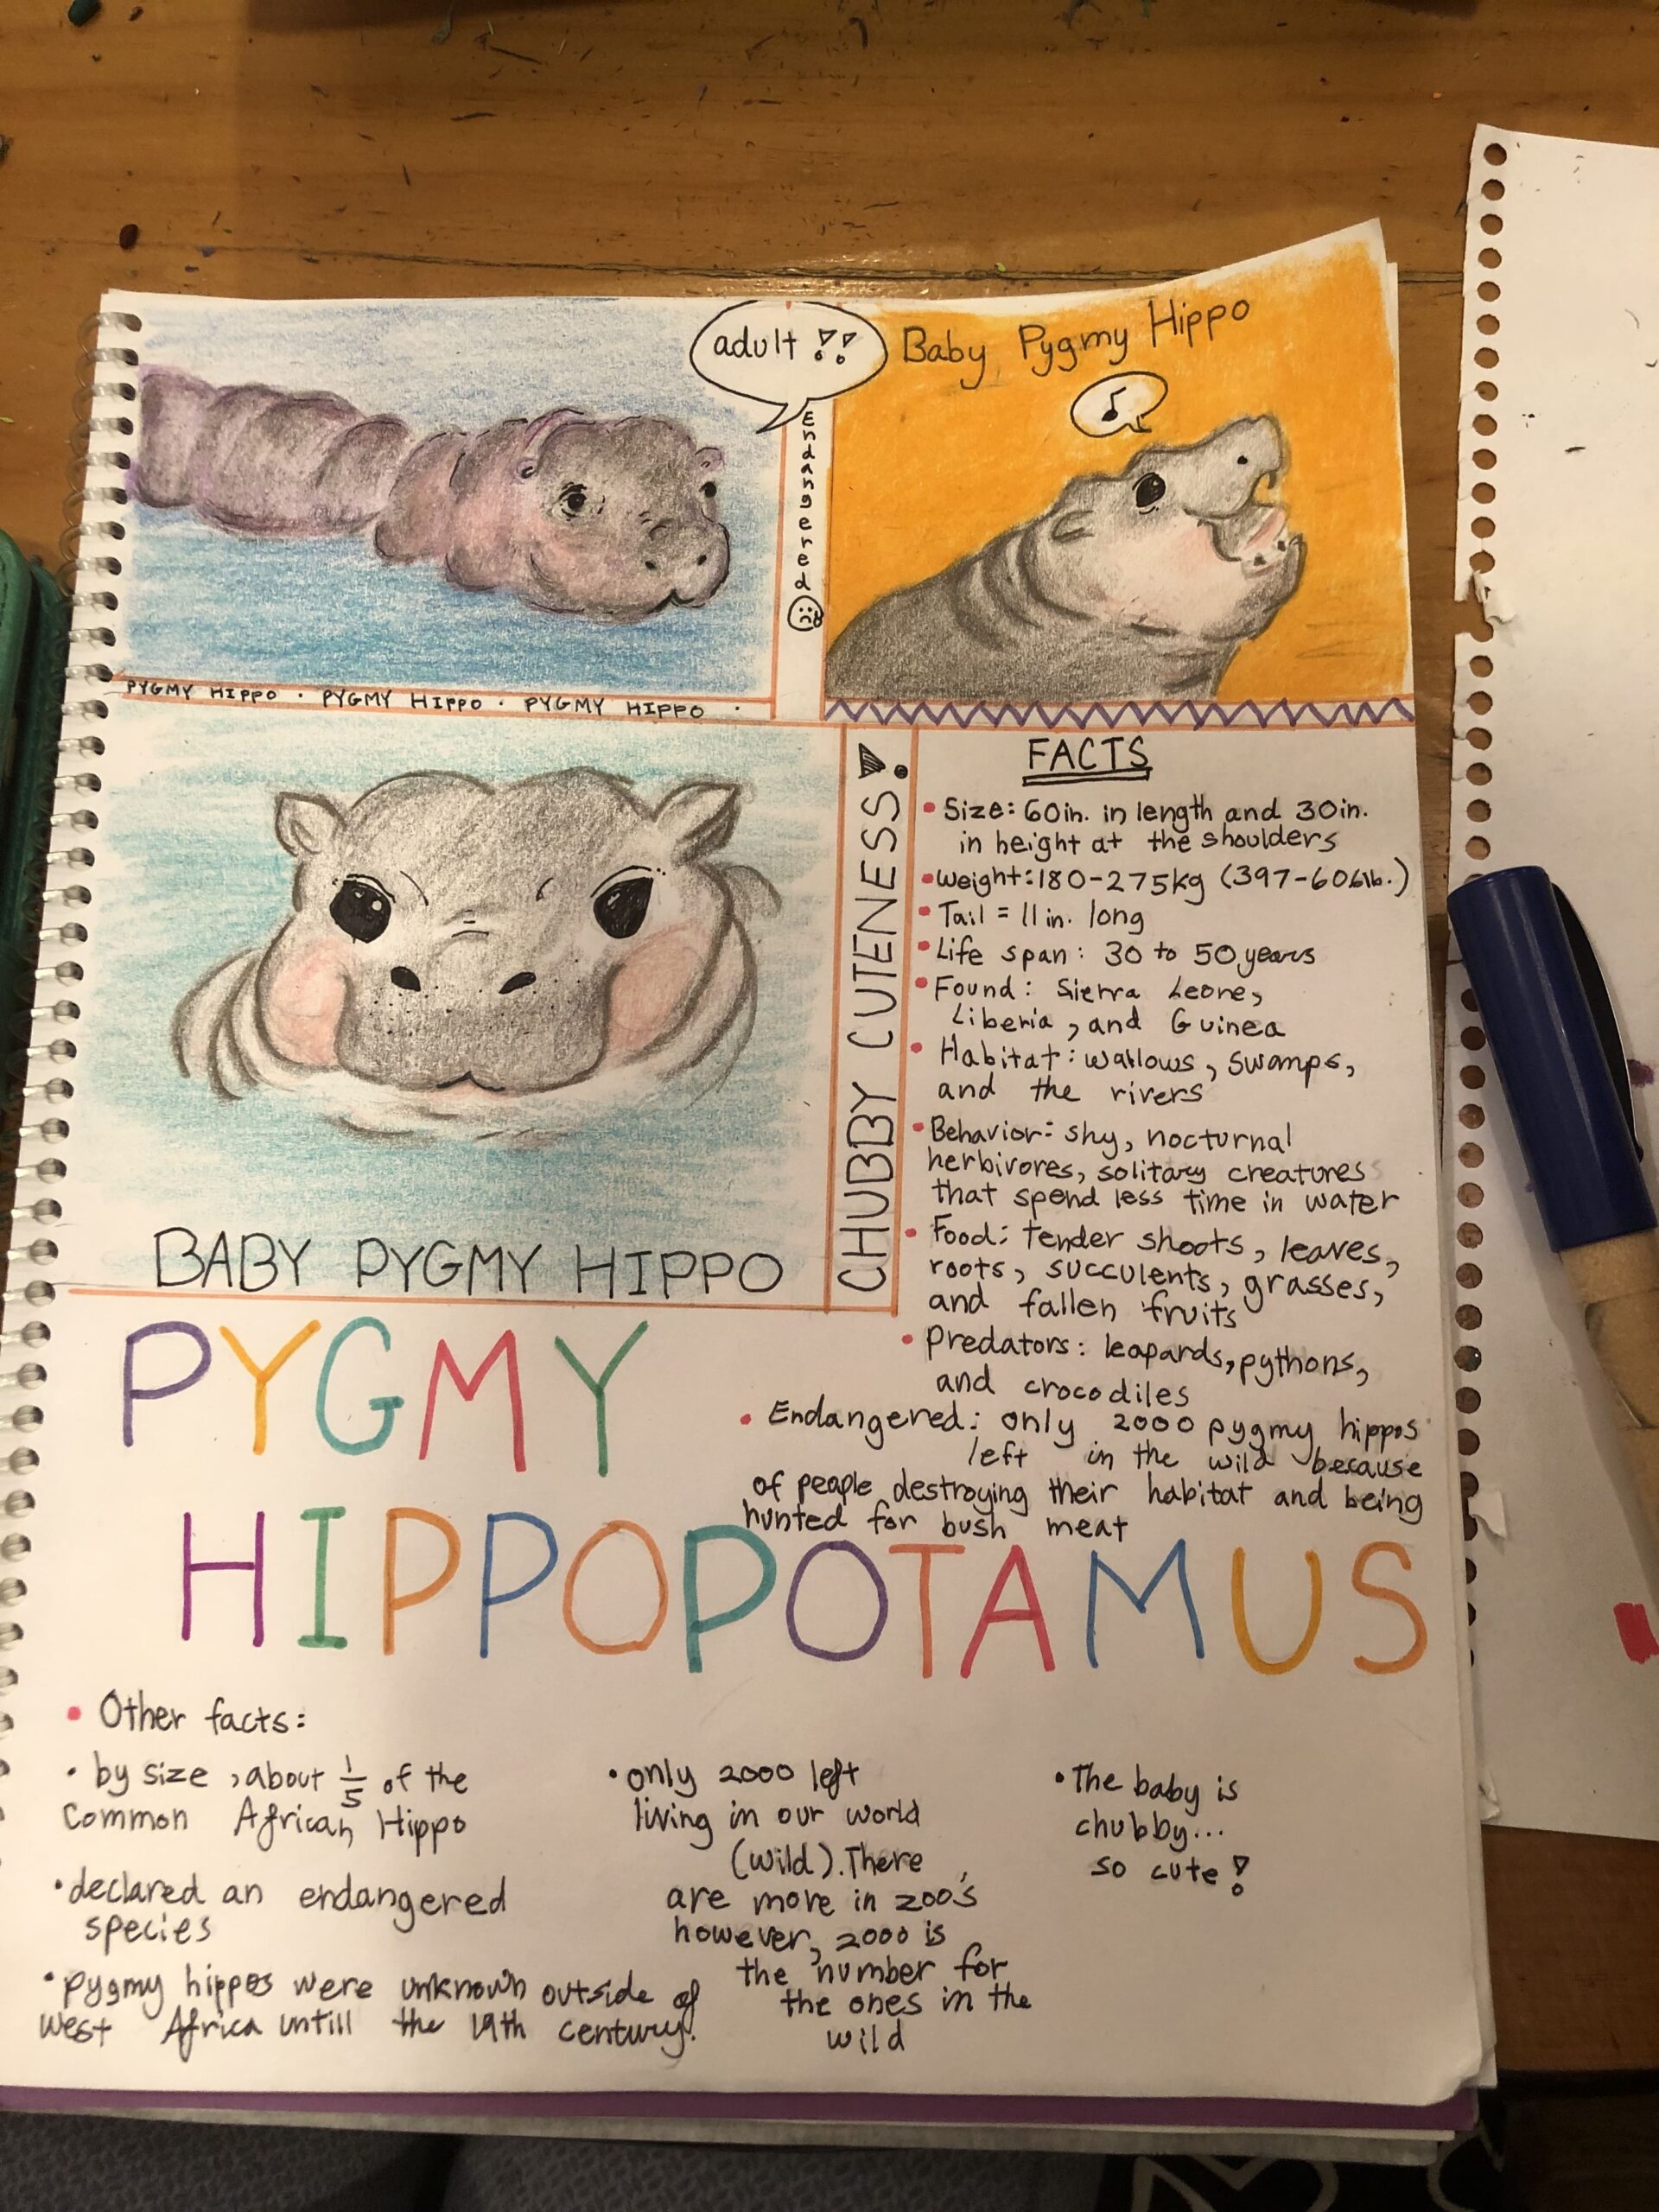 adult !!
Baby Pygmy Hippo
Endangered
PYGMY HIPPO · PYGMY HIPPO · PYGMY HIPPO ·
BABY PYGMY HIPPO
CHUBBY CUTENESS!
FACTS
• Size: 60in. in length and 30in.
in height at the shoulders
• Weight: 180-275kg (397-606lb.)
• Tail = 11in. long
• Life span: 30 to 50 years
• Found: Sierra Leone,
Liberia, and Guinea
• Habitat: wallows, swamps,
and the rivers
• Behavior: shy, nocturnal
herbivores, solitary creatures
that spend less time in water
• Food: tender shoots, leaves,
roots, succulents, grasses,
and fallen fruits
• Predators: leapards, pythons,
and crocodiles
• Endangered: only 2000 pygmy hippos
left in the wild because
of people destroying their habitat and being
hunted for bush meat
PYGMY
HIPPOPOTAMUS
• Other facts:
• by size, about 1/5 of the
Common African Hippo
• declared an endangered
species
• pygmy hippos were unknown outside of
West Africa untill the 19th century.
• only 2000 left
living in our world
(wild). There
are more in zoo's
however, 2000 is
the number for
the ones in the
wild
• The baby is
chubby...
so cute!